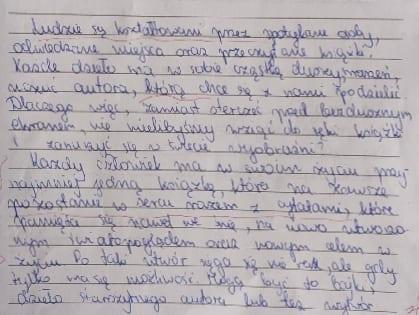 Ludzie są kształtowani przez spotykane osoby,
odwiedzane miejsca oraz przeczytane książki.
Każde dzieło ma w sobie cząstkę marzeń,
uczuć autora, którą chce się z nami podzielić
Dlaczego więc, zamiast sterczeć przed bezdusznym
ekranem, nie mielibyśmy wziąć do ręki książki
i zanurzyć się w świecie wyobraźni?
Każdy człowiek ma w swoim życiu przy
najmniej jedną książkę, która na zawsze
pozostanie w sercu razem z cytatami, które
pamięta się nawet we śnie, na nowo utworzo
nym światopoglądem oraz nowym celem w
życiu Po taki utwór sięga się nie raz, ale gdy
tylko ma się możliwość. Mogą być to bajki,
dzieło starożytnego autora lub też wybór